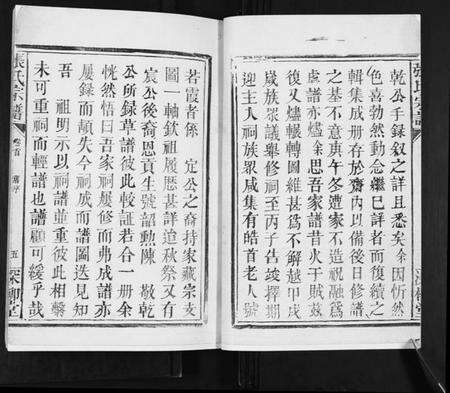 乾公手録叙之詳且悉矣余因忻然
色喜勃然動念繼已詳者而復續之
輯集成册存於齋内以備後日修譜
之基不意庚午冬遭家不造祝融為
虐譜亦燼余思吾家譜昔火于賊茲
復又燼輾轉圖維甚為不解越甲戌
歲族眾議舉修祠至丙子告竣擇期
迎主入祠族眾咸集有皓首老人號
若霞者係 定公之裔持家藏宗支
圖一軸欽祖履歷甚詳迨秋祭又有
宸公後裔恩貢生號韶勲陳 敬乾
公所録草譜彼此較証若合一册余
恍然悟曰吾家祠屢修而弗成譜亦
屢録而頻失今祠成而譜圖迭見知
吾 祖明示以祠譜並重彼此相繫
未可重祠而輕譜也譜顧可緩乎哉
張氏宗譜
卷首
五